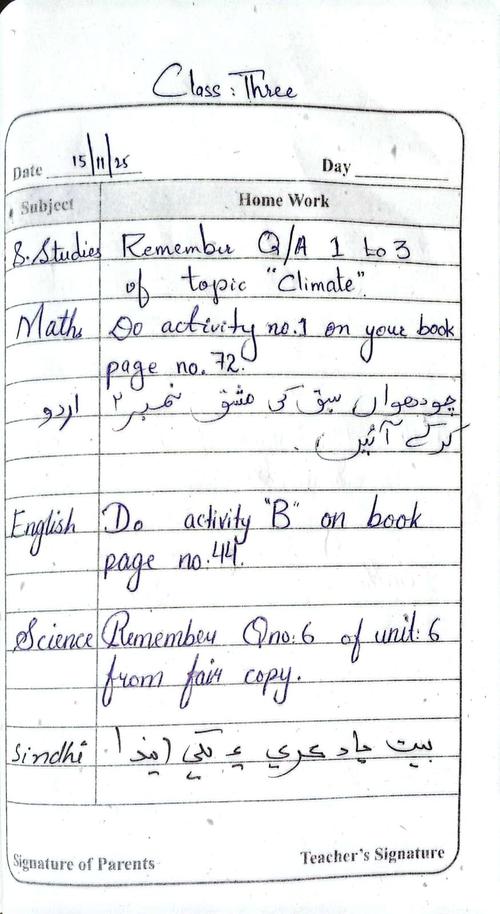 Class: Three
Date 15/11/25 Day
Subject Home Work
S.Studies Remember Q/A 1 to 3
of topic "Climate".
Maths Do activity no.1 on your book
page no.72.
اردو چودھواں سبق کی مشق نمبر ۲
کرکے آئیں۔
English Do activity "B" on book
page no.44.
Science Remember Qno:6 of unit:6
from fair copy.
Sindhi بيت ياد ڪري ۽ لکي ايندا
Signature of Parents Teacher's Signature